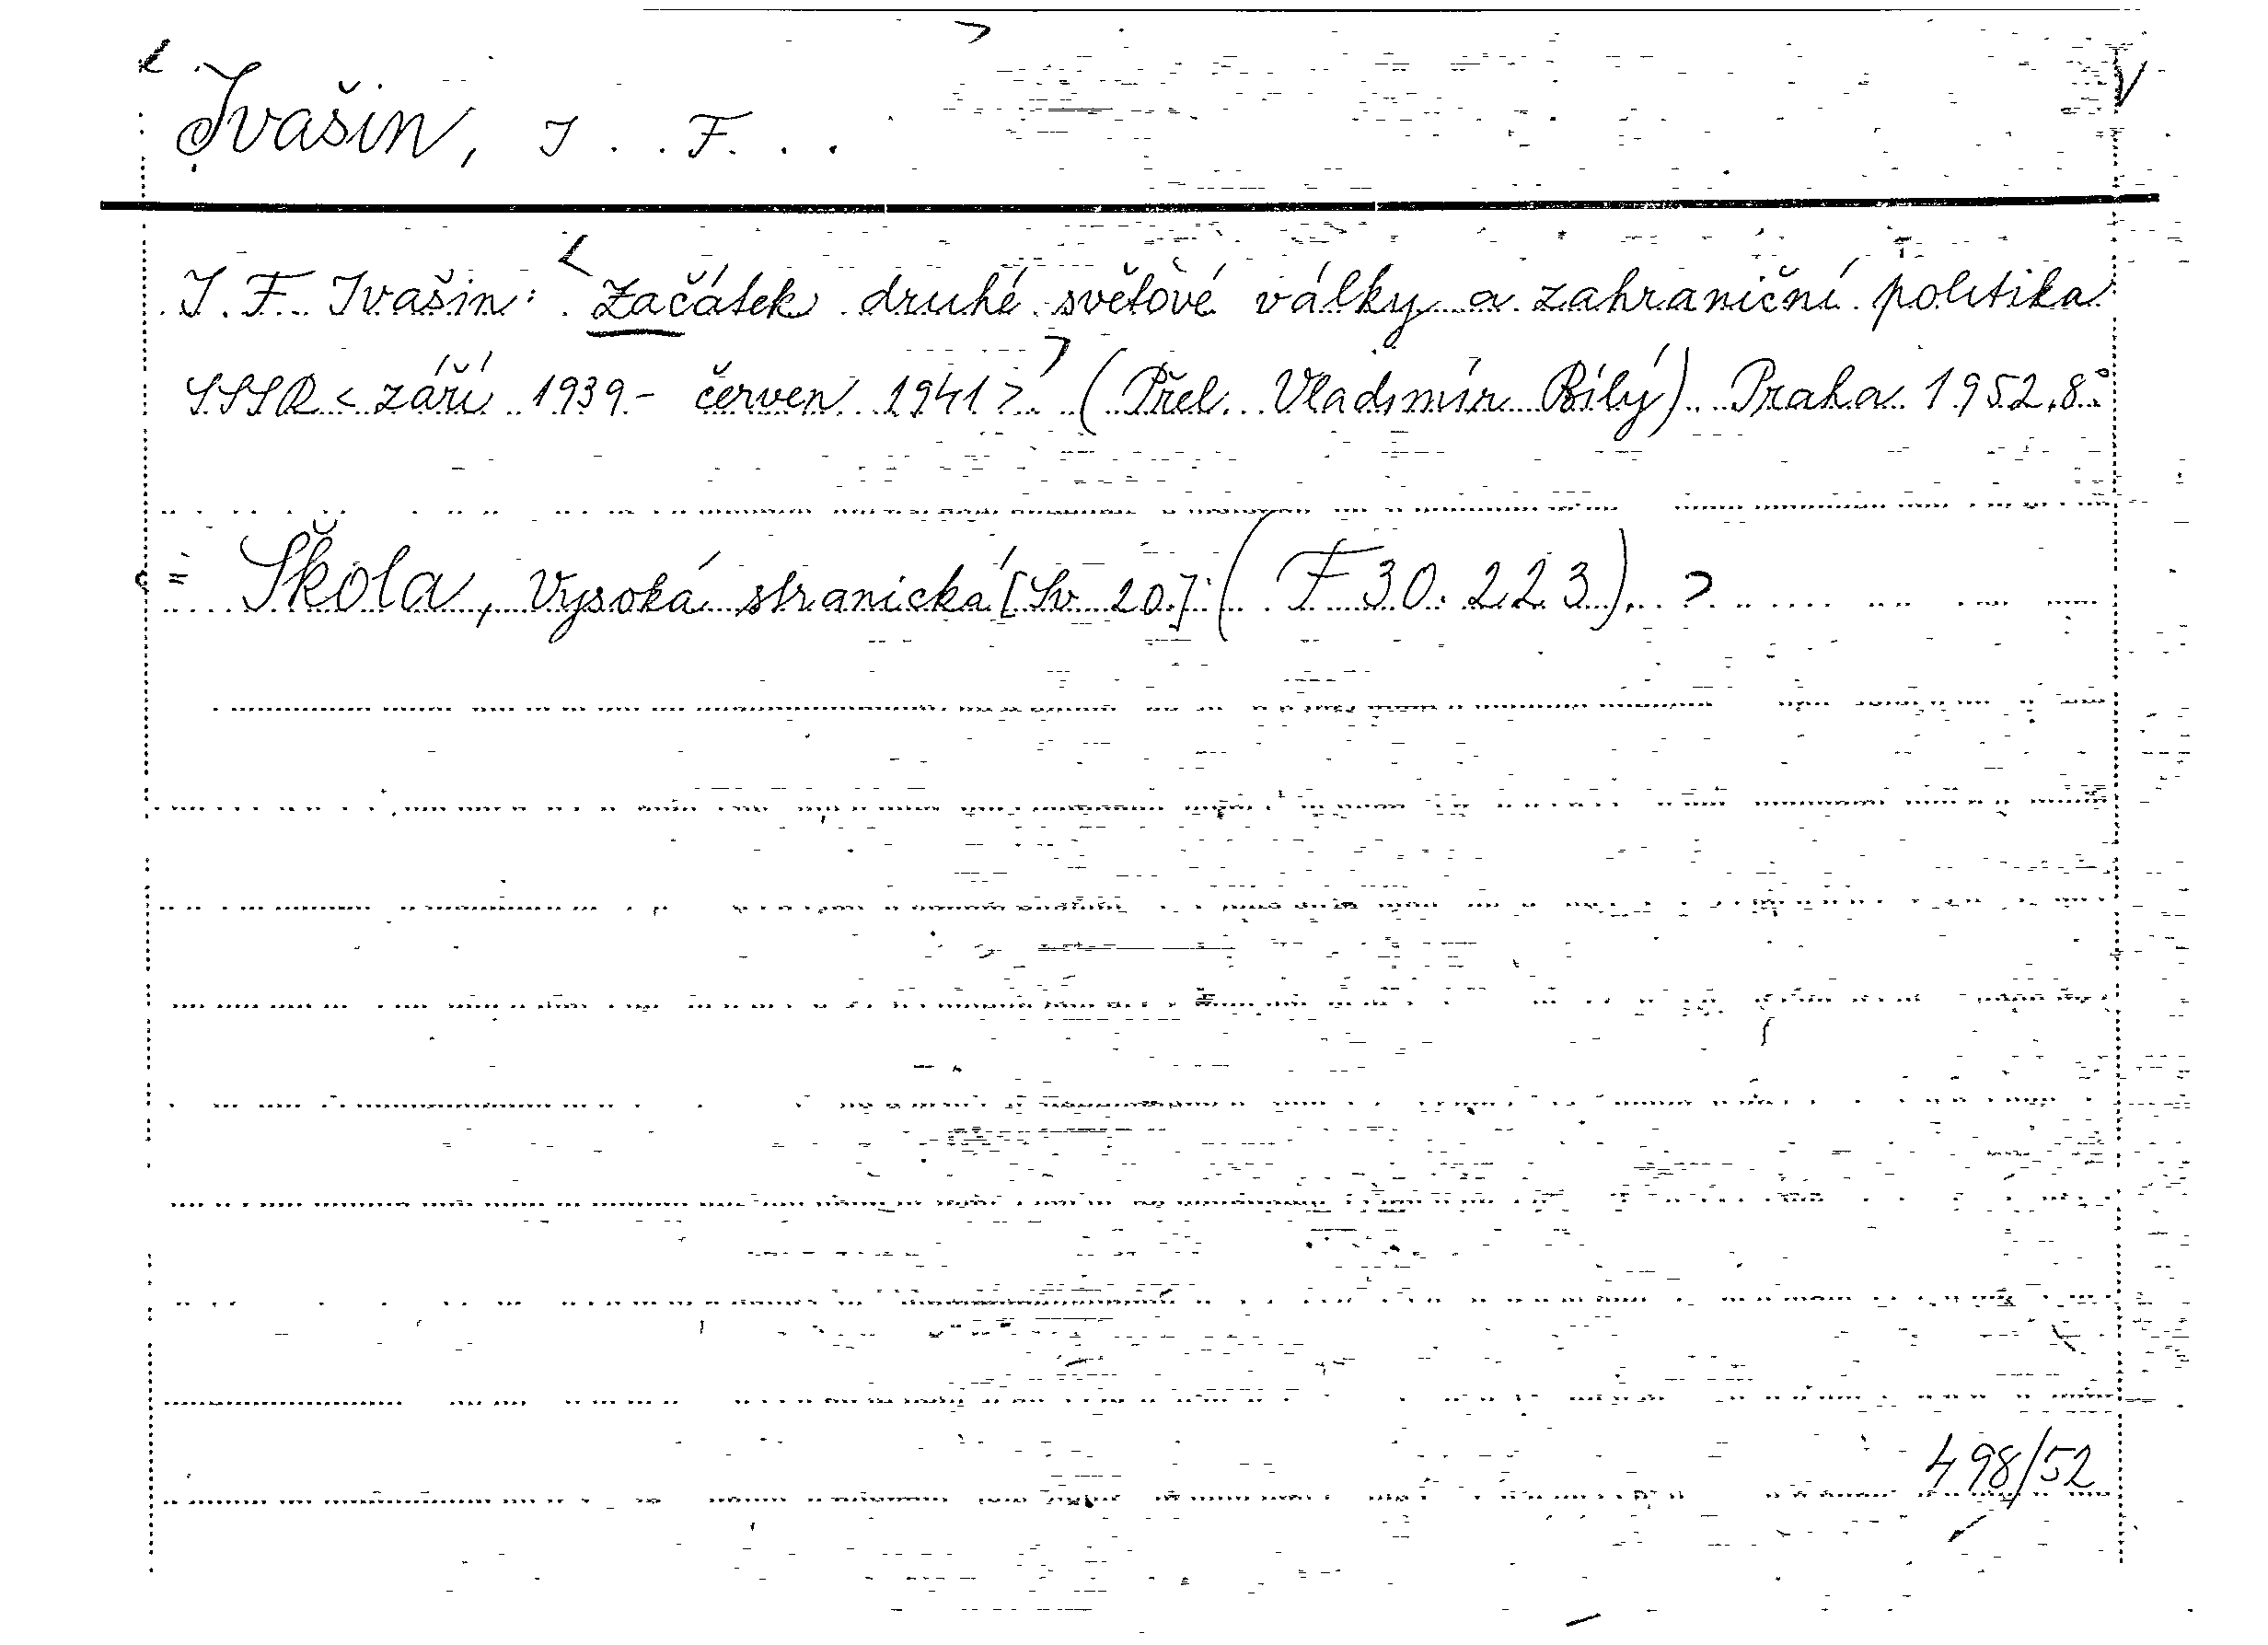 Ivašin, I . . F. . .
I. F. Ivašin: Začátek druhé světové války a zahraniční politika
SSSR < září 1939 - červen 1941 > (Přel. Vladimír Bílý) Praha 1952. 8°
= Škola, Vysoká stranická [Sv. 20]: ( F 30.223).
498/52